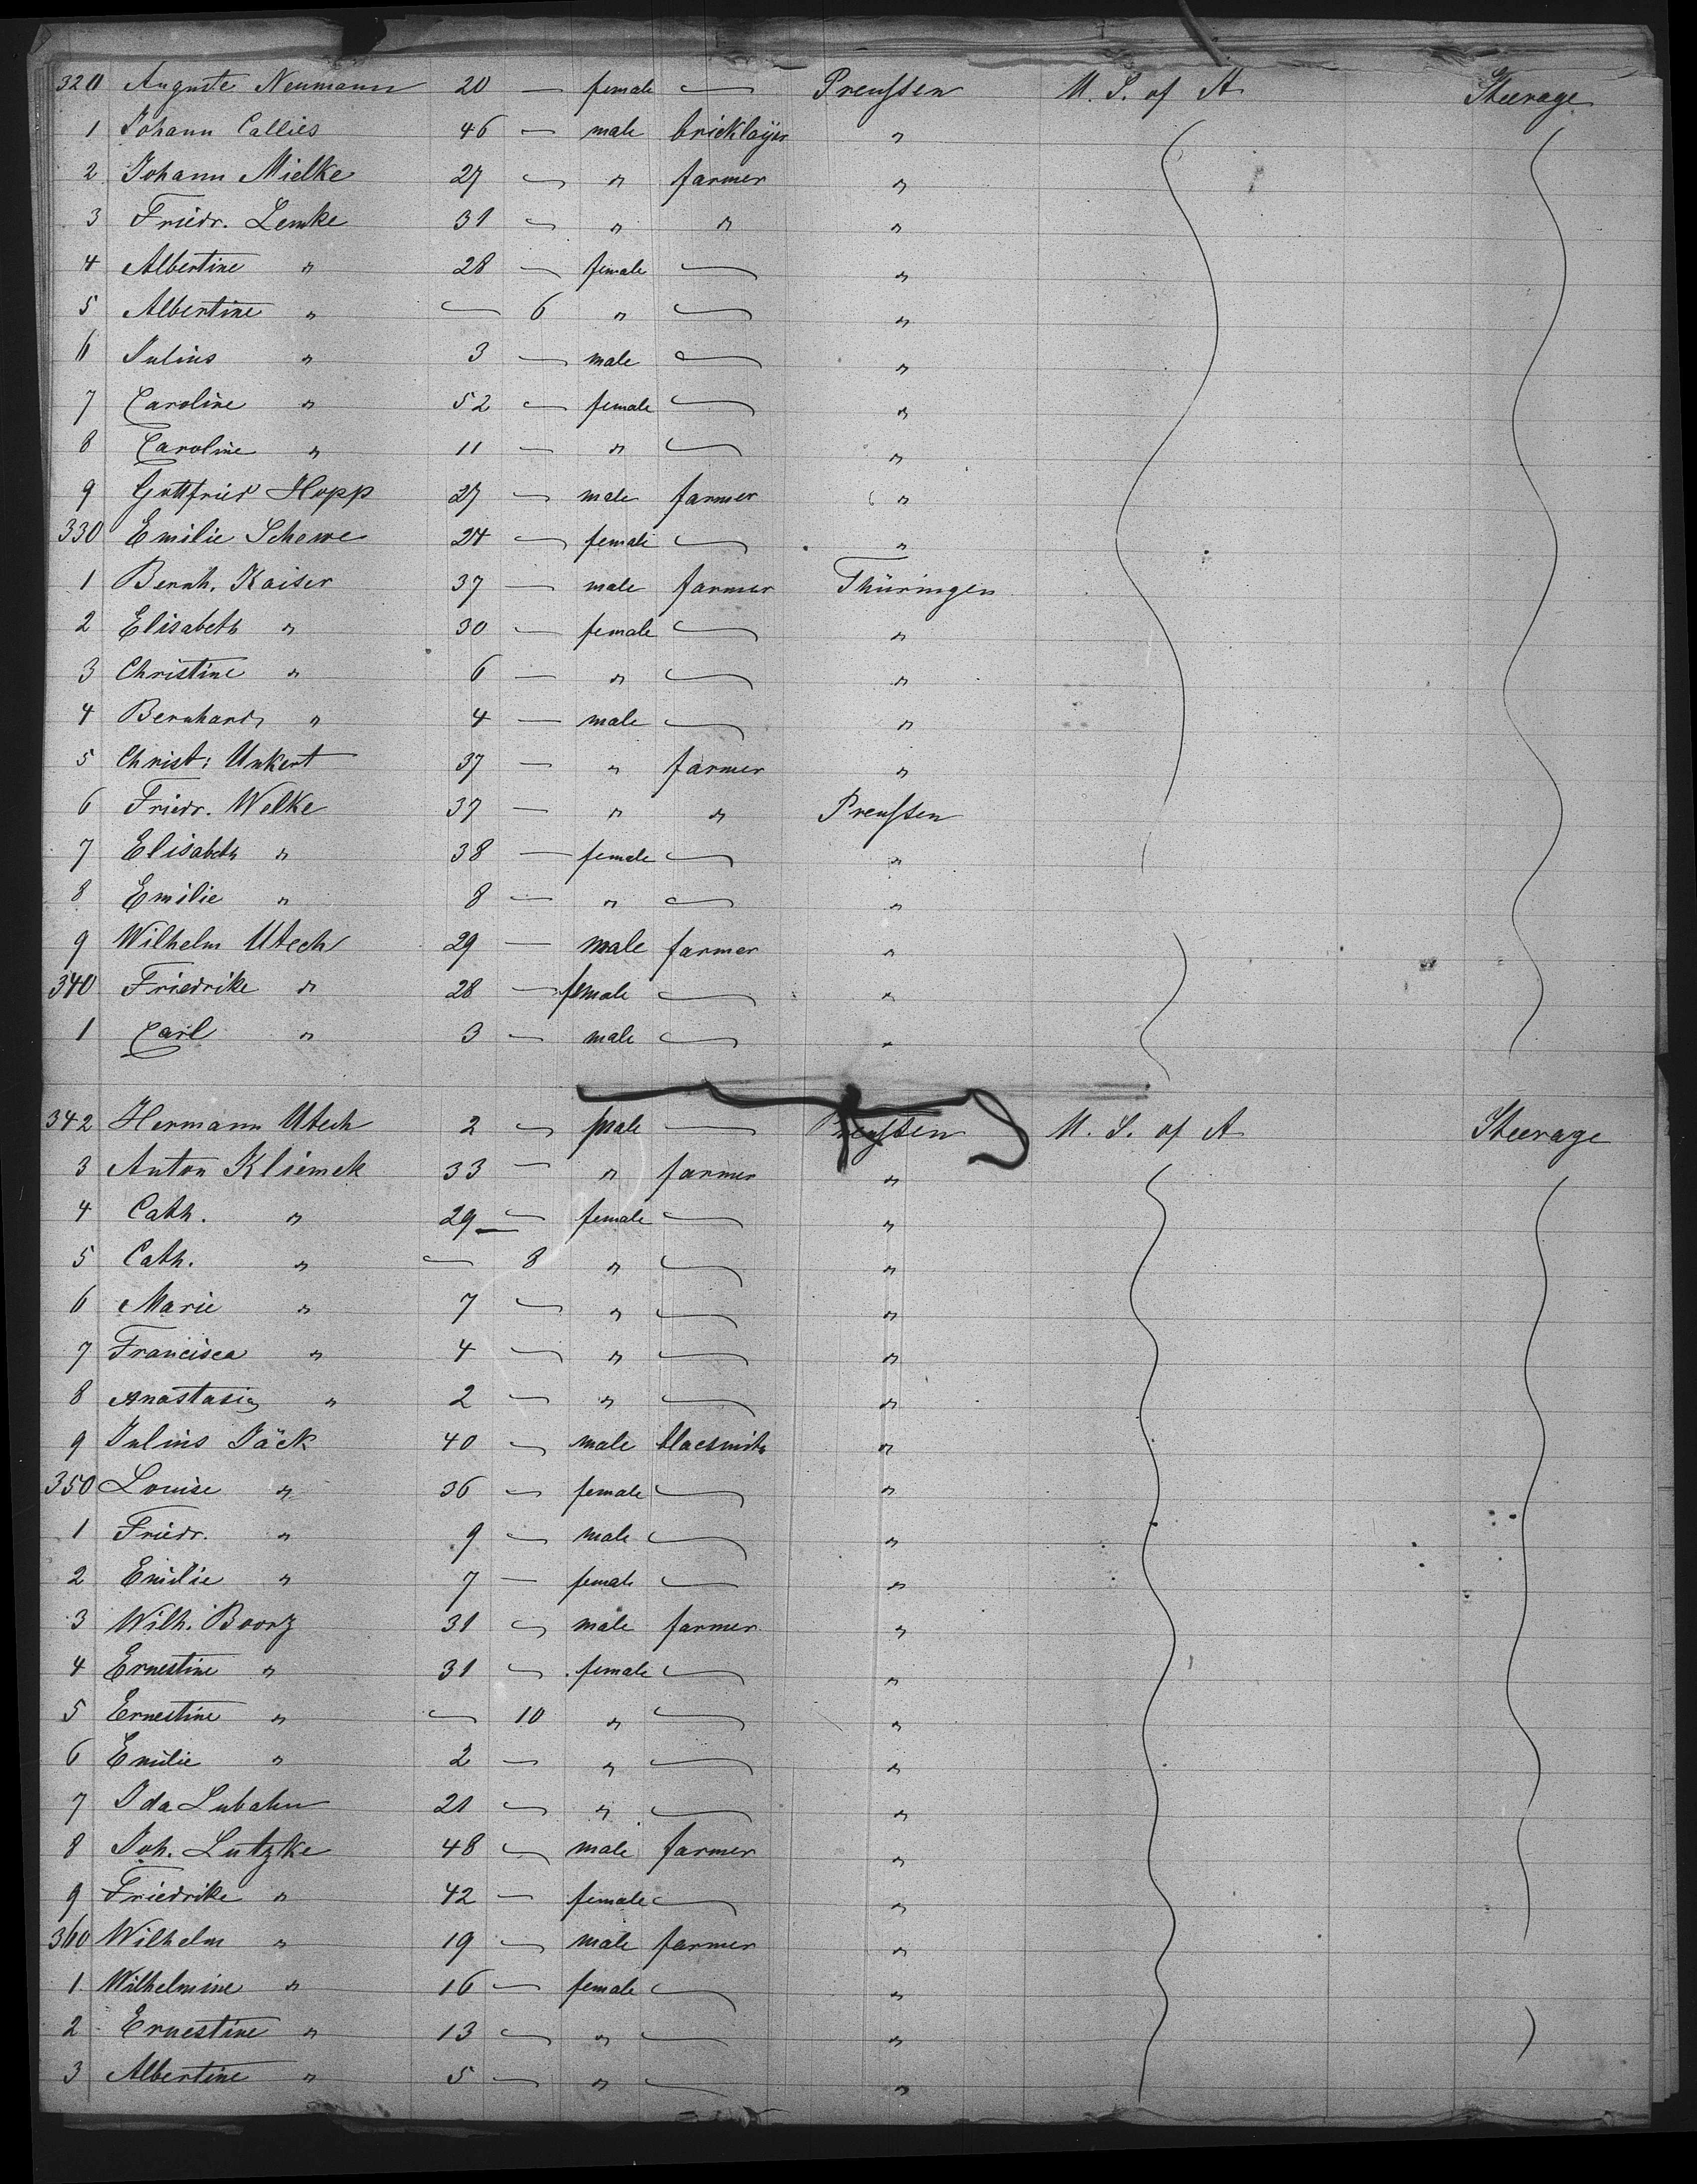 320 Auguste Neumann 20 — female — Preußen U. S. of A Steerage
1 Johann Callies 46 — male bricklayer "
2 Johann Mielke 27 — " farmer "
3 Friedr. Lemke 31 — " " "
4 Albertine " 28 — female — "
5 Albertine " — 6 " — "
6 Julius " 3 — male — "
7 Caroline " 52 — female — "
8 Caroline " 11 — " — "
9 Gottfried Hopp 27 — male farmer "
330 Emilie Schewe 24 — female — "
1 Bernh. Kaiser 37 — male farmer Thüringen
2 Elisabeth " 30 — female — "
3 Christine " 6 — " — "
4 Bernhard " 4 — male — "
5 Christ: Unkert 37 — " farmer "
6 Friedr. Welke 37 — " " Preußen
7 Elisabeth " 38 — female — "
8 Emilie " 8 — " — "
9 Wilhelm Utech 29 — male farmer "
340 Friedrike " 28 — female — "
1 Carl " 3 — male — "
342 Hermann Utech 2 — male — Preußen U. S. of A Steerage
3 Anton Kliemek 33 — " farmer "
4 Cath. " 29 — female — "
5 Cath. " — 8 " — "
6 Marie " 7 — " — "
7 Francisca " 4 — " — "
8 Anastasia " 2 — " — "
9 Julius Jäck 40 — male blacsmith "
350 Louise " 36 — female — "
1 Friedr. " 9 — male — "
2 Emilie " 7 — female — "
3 Wilh. Boorz 31 — male farmer "
4 Ernestine " 31 — female — "
5 Ernestine " — 10 " — "
6 Emilie " 2 — " — "
7 Ida Lubahn 21 — " — "
8 Joh. Lutzke 48 — male farmer "
9 Friedrike " 42 — female — "
360 Wilhelm " 19 — male farmer "
1 Wilhelmine " 16 — female — "
2 Ernestine " 13 — " — "
3 Albertine " 5 — " — "